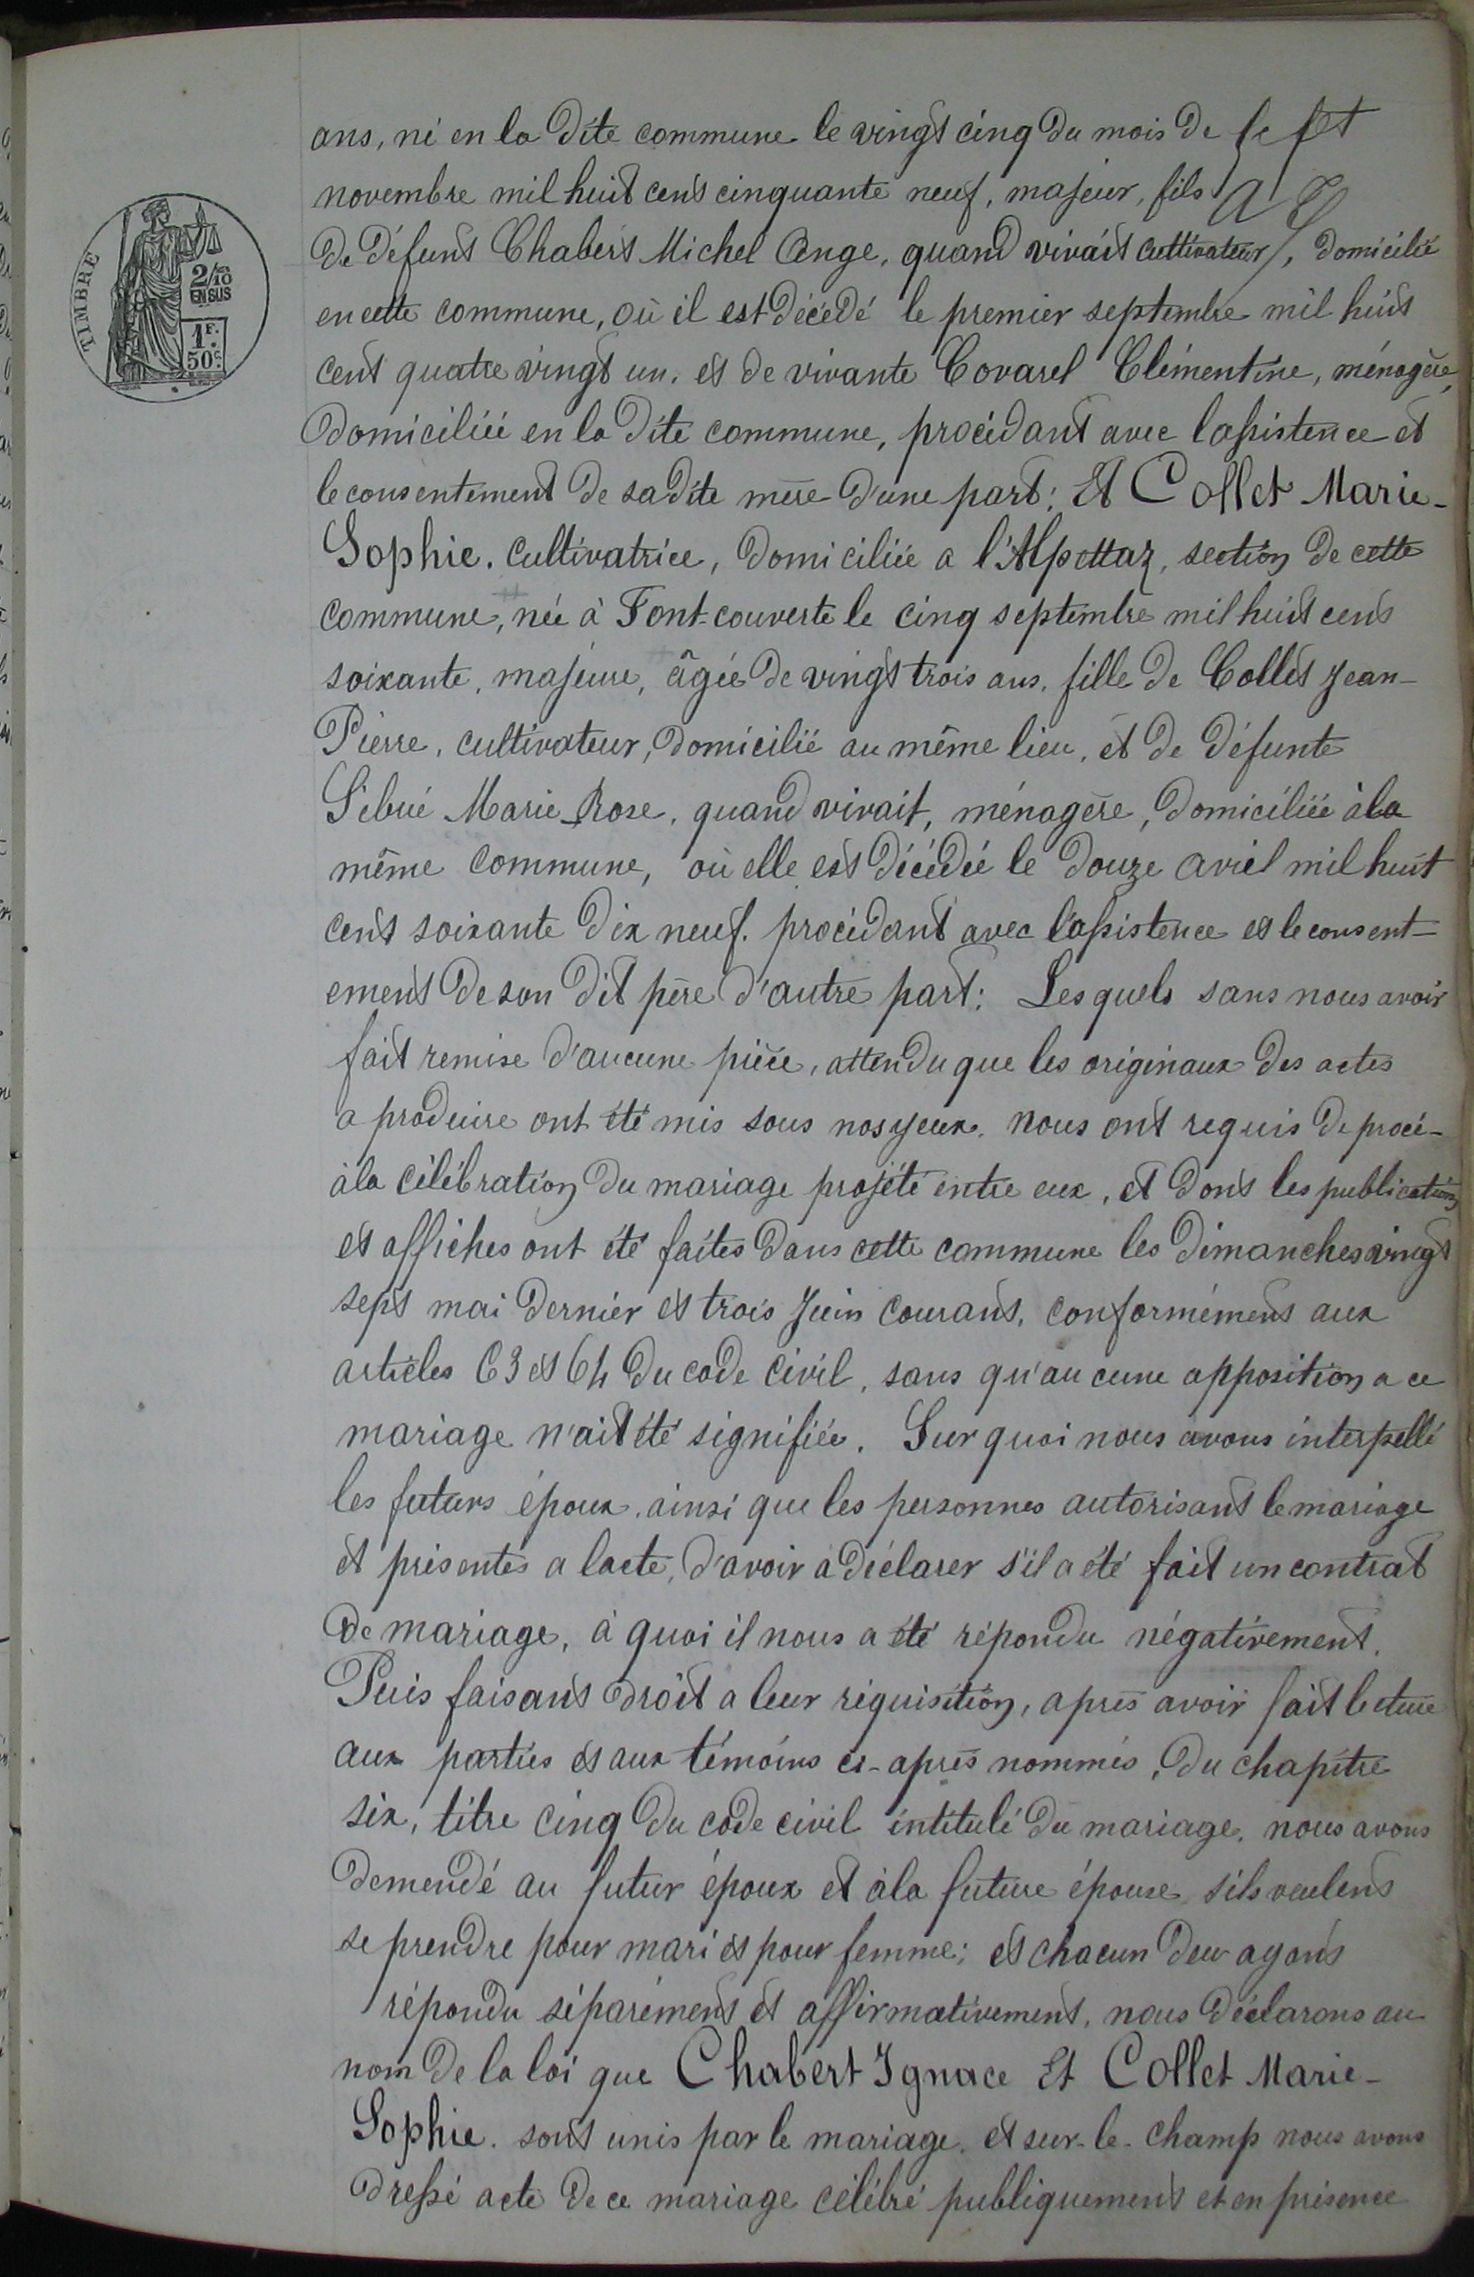 TIMBRE
2/10
EN SUS
1F.
50c.
ans, né en la dite commune le vingt cinq du mois de
novembre mil huit cent cinquante neuf, majeur, fils
de défunt Chabert Michel Ange, quand vivait cultivateur, domicilié
en cette commune, où il est décédé le premier septembre mil huit
cent quatre vingt un, et de vivante Covarel Clémentine, ménagère,
domiciliée en la dite commune, procédant avec lassistence et
le consentement de sa dite mère d'une part: Et Collet Marie-
Sophie, cultivatrice, domiciliée a l'Alpettaz, section de cette
commune, née à Font-couverte le cinq septembre mil huit cent
soixante, majeure, âgée de vingt trois ans, fille de Collet Jean-
Pierre, cultivateur, domicilié au même lieu, et de défunte
Sibué Marie Rose, quand vivait, ménagère, domiciliée à la
même commune, où elle est décédée le douze avril mil huit
cent soixante dix neuf, procédant avec l'assistence et le consent-
ement de son dit père d'autre part: Lesquels sans nous avoir
fait remise d'aucune pièce, attendu que les originaux des actes
a produire ont été mis sous nos yeux, nous ont requis de procé-
à la célébration du mariage projété entre eux, et dont les publications
et affiches ont été faites dans cette commune les dimanches vingt
sept mai dernier et trois Juin courant, conformément aux
articles 63 et 64 du code civil, sans qu'aucune opposition a ce
mariage n'ait été signifiée. Sur quoi nous avons interpellé
les futurs époux, ainsi que les personnes autorisant le mariage
et présentes a lacte, d'avoir à déclarer s'il a été fait un contrat
de mariage, à quoi il nous a été répondu négativement.
Puis faisant droit a leur réquisition, après avoir fait lecture
aux parties et aux témoins ci-après nommés, du chapitre
six, titre cinq du code civil intitulé du mariage, nous avons
demendé au futur époux et à la future épouse s'ils veulent
se prendre pour mari et pour femme; et chacun deux ayant
répondu séparément et affirmativement, nous déclarons au
nom de la loi que Chabert Ignace Et Collet Marie-
Sophie. sont unis par le mariage. et sur-le-champ nous avons
dressé acte de ce mariage célébré publiquement et en présence